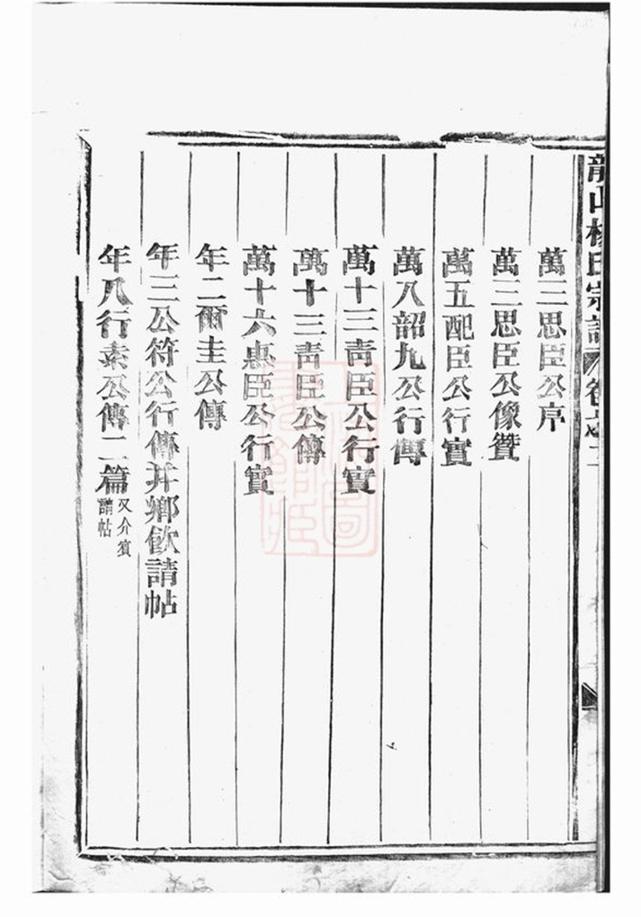 龍山楊氏宗譜 卷之二
萬三思臣公序
萬三思臣公像贊
萬五配臣公行實
萬八韶九公行傳
萬十三靑臣公行實
萬十三靑臣公傳
萬十六惠臣公行實
年二爾圭公傳
年三公符公行傳并鄉飮請帖
年八行素公傳二篇又介賓請帖